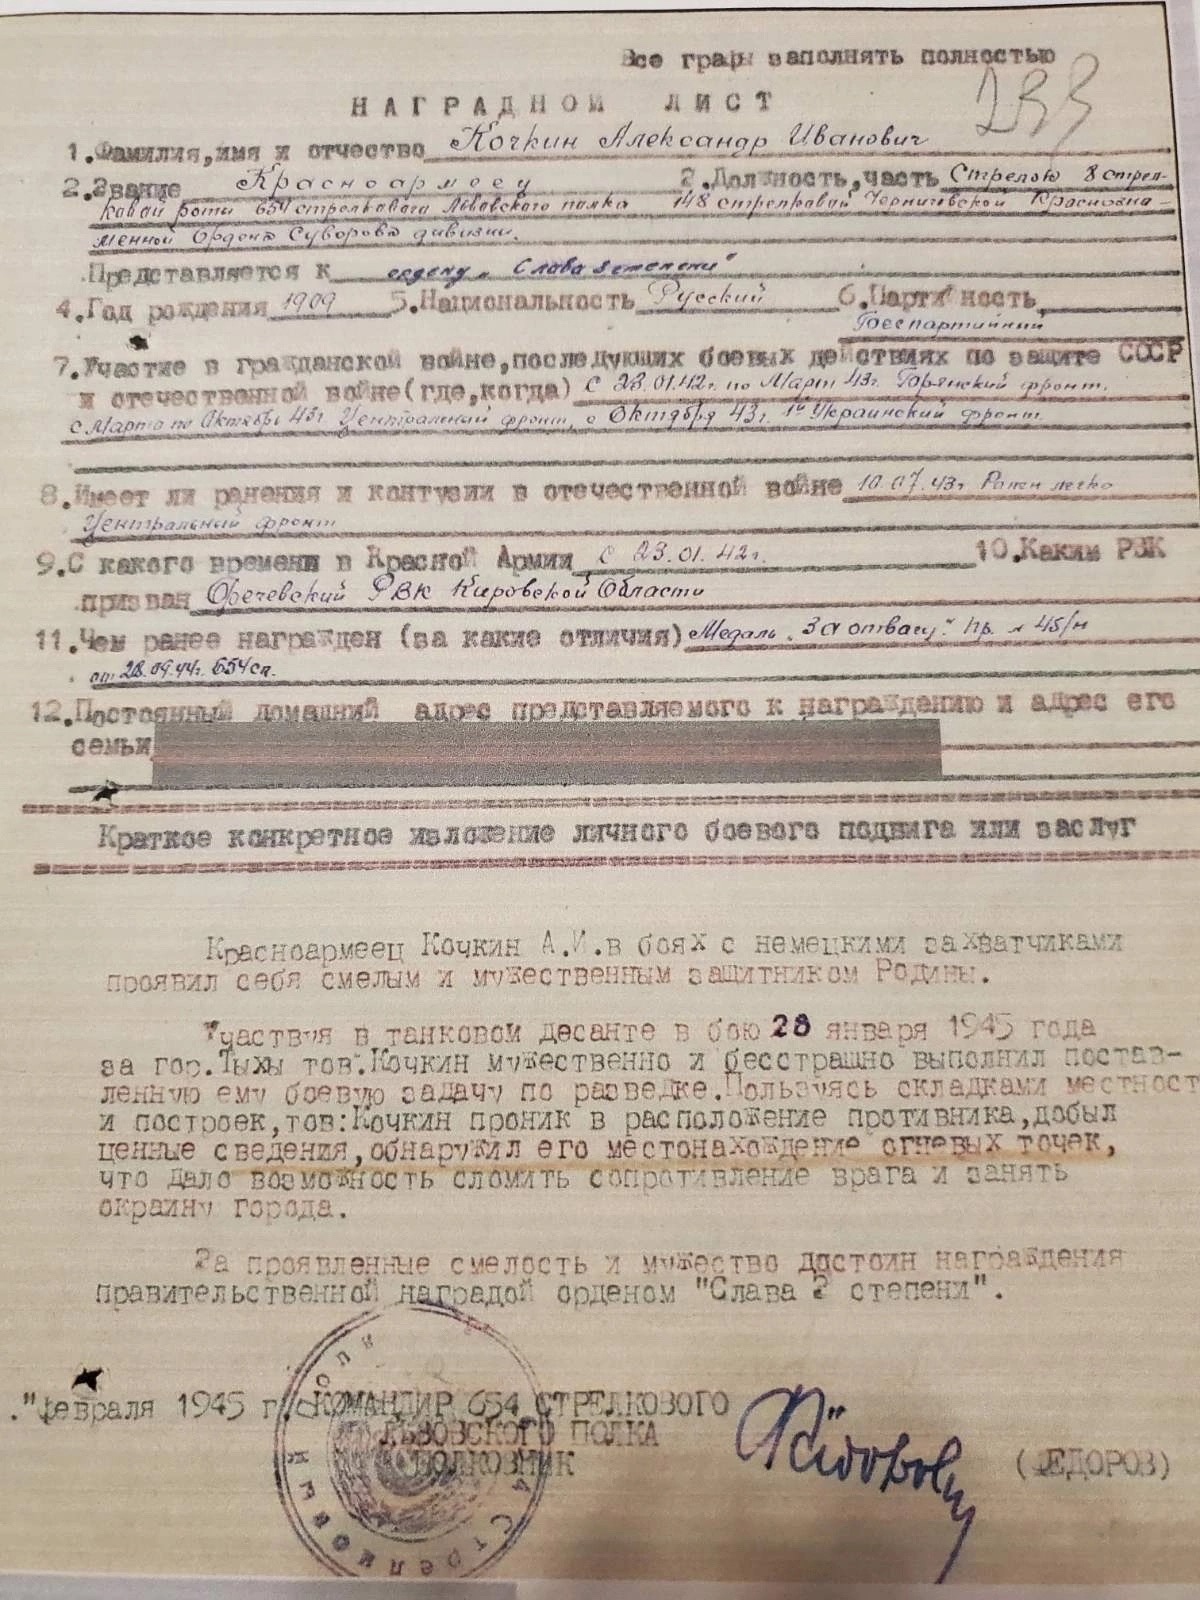 Все графы заполнять полностью
233
НАГРАДНОЙ ЛИСТ
1.Фамилия,имя и отчество Кочкин Александр Иванович
2.Звание Красноармеец 3.Должность,часть Стрелок 8 стрел-
ковой роты 654 стрелкового Львовского полка 148 стрелковой Черниговской Краснозна-
менной Ордена Суворова дивизии.
Представляется к ордену „Слава 3 степени"
4.Год рождения 1909 5.Национальность Русский 6.Партийность
Беспартийный
7.Участие в гражданской войне,последующих боевых действиях по защите СССР
и отечественной войне(где,когда) С 23.01.42г. по Март 43г. Брянский фронт.
с Марта по Октябрь 43г. Центральный фронт, с Октября 43г. 1й Украинский фронт.
8.Имеет ли ранения и контузии в отечественной войне 10.07.43г Ранен легко
Центральный фронт
9.С какого времени в Красной Армии с 23.01.42г. 10.Каким РВК
призван РВК Кировской Области
11.Чем ранее награжден (за какие отличия) Медаль „За отвагу". Пр. № 45/н
от 28.09.44г. 654 сп.
12.Постоянный домашний адрес представляемого к награждению и адрес его
семьи
Краткое конкретное изложение личного боевого подвига или заслуг
Красноармеец Кочкин А.И.в боях с немецкими захватчиками
проявил себя смелым и мужественным защитником Родины.
Участвуя в танковом десанте в бою 28 января 1945 года
за гор.Тыхы тов.Кочкин мужественно и бесстрашно выполнил постав-
ленную ему боевую задачу по разведке.Пользуясь складками местност
и построек,тов:Кочкин проник в расположение противника,добыл
ценные сведения,обнаружил его местонахождение огневых точек,
что дало возможность сломить сопротивление врага и занять
окраину города.
За проявленные смелость и мужество достоин награждения
правительственной наградой орденом "Слава 3 степени".
."февраля 1945 г. КОМАНДИР 654 СТРЕЛКОВОГО
ЛЬВОВСКОГО ПОЛКА
ПОЛКОВНИК
(ФЕДОРОВ)
Стрелковый